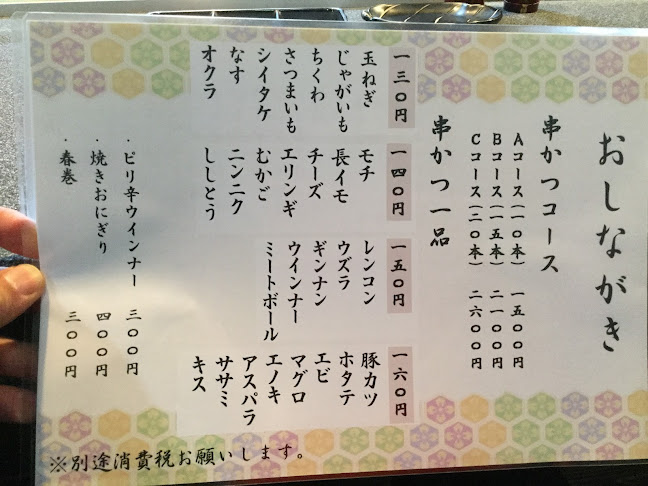 おしながき
串かつコース
Aコース（一〇本） 一五〇〇円
Bコース（一五本） 二一〇〇円
Cコース（二〇本） 二六〇〇円
串かつ一品
一三〇円
玉ねぎ
じゃがいも
ちくわ
さつまいも
シイタケ
なす
オクラ
一四〇円
モチ
長イモ
チーズ
エリンギ
むかご
ニンニク
ししとう
一五〇円
レンコン
ウズラ
ギンナン
ウインナー
ミートボール
一六〇円
豚カツ
ホタテ
エビ
マグロ
エノキ
アスパラ
ササミ
キス
・ピリ辛ウインナー 三〇〇円
・焼きおにぎり 四〇〇円
・春巻 三〇〇円
※別途消費税お願いします。